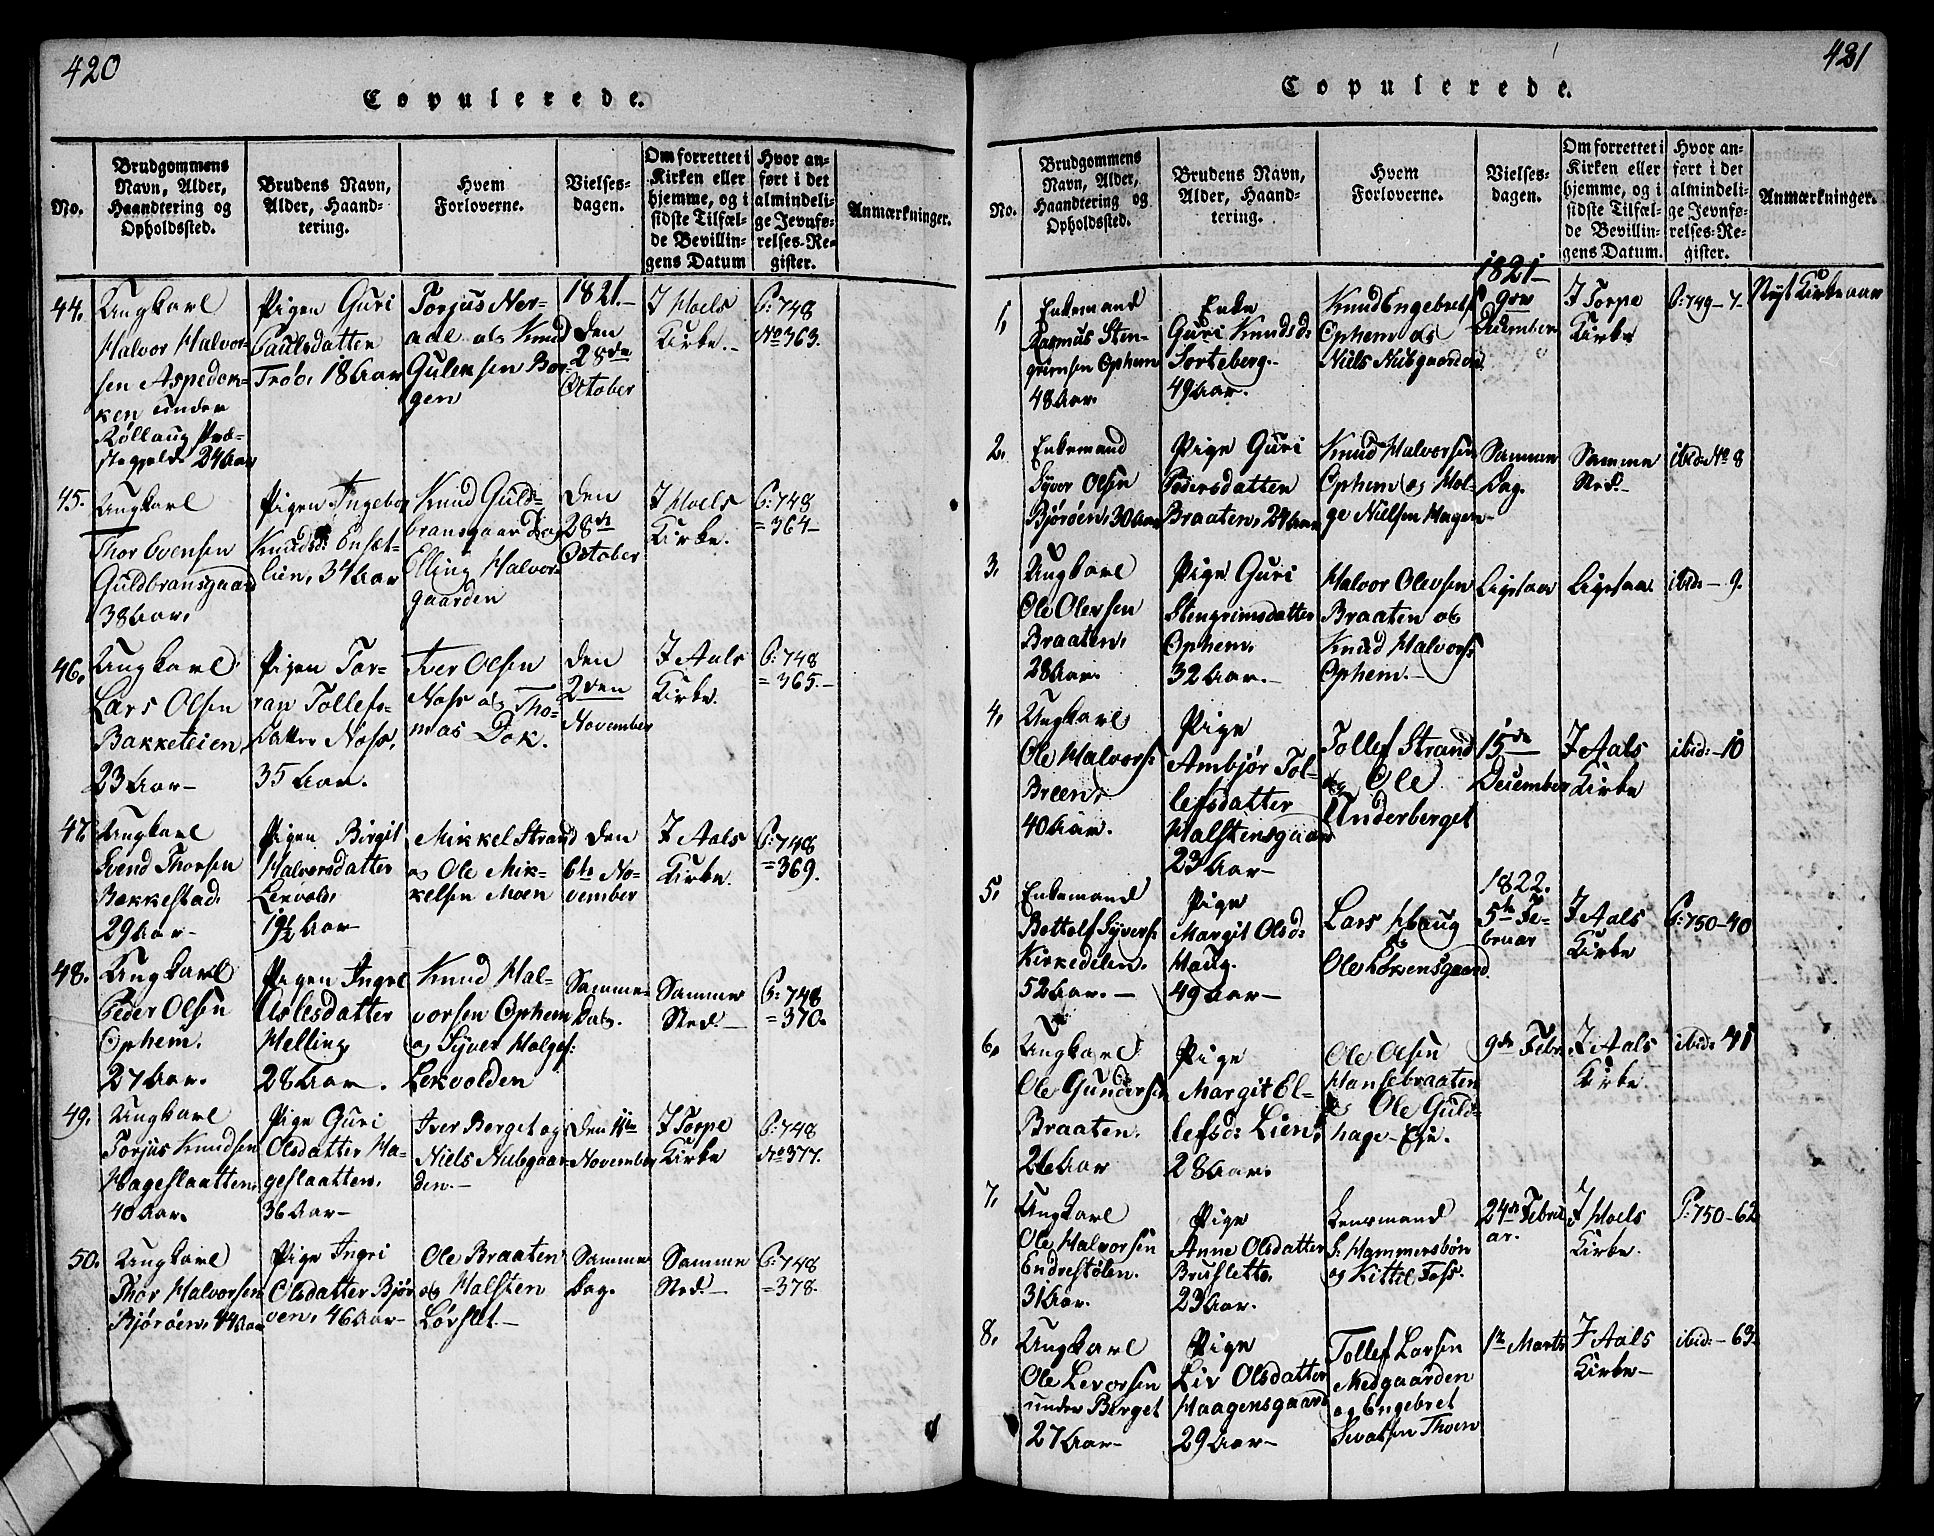 420
Copulerede.
No.
Brudgommens
Navn, Alder,
Haandtering og
Opholdssted.
Brudens Navn,
Alder, Haand-
tering.
Hvem
Forloverne.
Vielses-
dagen.
Om forrettet i
Kirken eller
hjemme, og i
sidste Tilfæl-
de Bevillin-
gens Datum
Hvor an-
ført i det
almindeli-
ge Jevnfø-
relses-Re-
gister.
Anmærkninger.
44.
Ungkarl
Halvor Halvor-
sen Aspedok-
ken under
Rollaug Præ-
stegjeld. 24 Aar
Pigen Guri
Paulsdatten
Trøo. 18 Aar
Torjus Ner-
aal og Knud
Gulensen Bor-
gen
1821.
Den
28de
October
I Hoels
Kirke.
P: 748
No 363.
45.
Ungkarl
Thor Evensen
Guldbransgaard
38 Aar.
Pigen Ingebor
Knudsd: Ensæt-
lien. 34 Aar
Knud Guld-
bransgaar og
Elling Halvor-
gaarden
Den
28de
October
I Hoels
Kirke.
P: 748
= 364-
46.
Ungkarl
Lars Olsen
Bakketeien
23 Aar-
Pigen Tor-
ran Tollefs-
datter Noss.
35 Aar.
Iver Olsen
Noss og Tho-
mas Dok.
Den
2den
November
I Aals
Kirke.
P: 748
= 365.-
47.
Ungkarl
Svend Thorsen
Bakkestad.
29 Aar-
Pigen Birgit
Halvorsdatter
Lervold.
19½ Aar-
Mikkel Strand
og Ole Mik-
kelsen Moen
Den
6te No-
vember
I Aals
Kirke.
P: 748
= 369.
48.
Ungkarl
Peder Olsen
Ophem.
27 Aar.
Pigen Ingel
Aslesdatter
Helling
28 Aar.
Knud Hal-
vorsen Ophem
og Syver Holgef:
Lekvolden
Samme-
Dag.
Samme
Sted.-
P: 748
= 370.
49.
Ungkarl
Torjus Knudsen
Hageslaatten.
40 Aar.
Pige Guri
Olsdatter Ha-
geslaatten.
36 Aar-
Iver Berget og
Niels Nubgaar-
den.-
Den 11te
November
I Torpe
Kirke
P: 748
No 377.
50.
Ungkarl
Thor Halvorsen
Bjørøen. 44 Aar
Pige Ingri
Olsdatter Bjør-
øen. 46 Aar-
Ole Braaten
og Halsten
Lørslet.-
Samme
Dag.
Samme
Sted.-
P: 748
= 378.
421
Copulerede.
No.
Brudgommens
Navn, Alder,
Haandtering og
Opholdssted.
Brudens Navn,
Alder, Haand-
tering.
Hvem
Forloverne.
Vielses-
dagen.
Om forrettet i
Kirken eller
hjemme, og i
sidste Tilfæl-
de Bevillin-
gens Datum.
Hvor an-
ført i det
almindeli-
ge Jevnfø-
relses-Re-
gister.
Anmærkninger.
1.
Enkemand
Rasmus Sten-
grimsen Ophem
48 Aar.
Enke
Guri Knudsd:
Sorteberg.-
49 Aar.
Knud Engebrets:
Ophem og
Niels Nubgaarden
1821-
9de
December
I Torpe
Kirke
P: 749- 7.
Nyt Kirkeaar
2.
Enkemand
Syver Olsen
Bjørøen. 30 Aar
Pige Guri
Pedersdatten
Braaten. 24 Aar
Knud Halvorsen
Ophem og Hol-
ge Nielsen Hagen-
Samme
Dag.
Samme
Sted.-
ibid: No 8
3.
Ungkarl
Ole Olevsen
Braaten.
28 Aar.
Pige Guri
Stengrimsdatter
Ophem.
32 Aar.-
Halvor Olevsen
Braaten og
Knud Halvors:
Ophem.-
Ligesaa
Ligesaa.
ibid:- 9.
4.
Ungkarl
Ole Halvors:
Breen.
40 Aar.
Pige
Ambjør Tol-
lefsdatter
Halstensgaard
23 Aar-
Tollef Strand
og Ole
Underberget
15de
December
I Aals
Kirke
ibid:- 10
5.
Enkemand
Bottolf Syvers:
Kirkedelen.
52 Aar.-
Pige
Margit Olsd:
Haug.
49 Aar-
Lars Haug
&
Ole Larsensgaard
1822.
5te Fe-
bruar
I Aals
Kirke
P: 750-40
6.
Ungkarl
Ole Gundersen
Braaten.
26 Aar
Pige
Margit El-
lefsd: Lien
28 Aar.
Ole Olsen
Hansebraaten
og Ole Guld-
hage- Eje.
9de Febr.
I Aals
Kirke
ibid: 41
7.
Ungkarl
Ole Halvorsen
Endrestølen.
31 Aar.
Pige
Anne Olsdatter
Brusletto.
23 Aar.
Lensmand
S: Hammersbøn
og Kittil Foss.
24de Febru
ar.
I Hoels
Kirke.
P: 750-62
8.
Ungkarl
Ole Levorsen
under Berget
27 Aar-
Pige
Liv Olsdatter
Haagensgaard
29 Aar-
Tollef Larsen
Medgaarden
og Engebret
Thoen
1te Marts
I Aals
Kirke-
ibid:- 63.